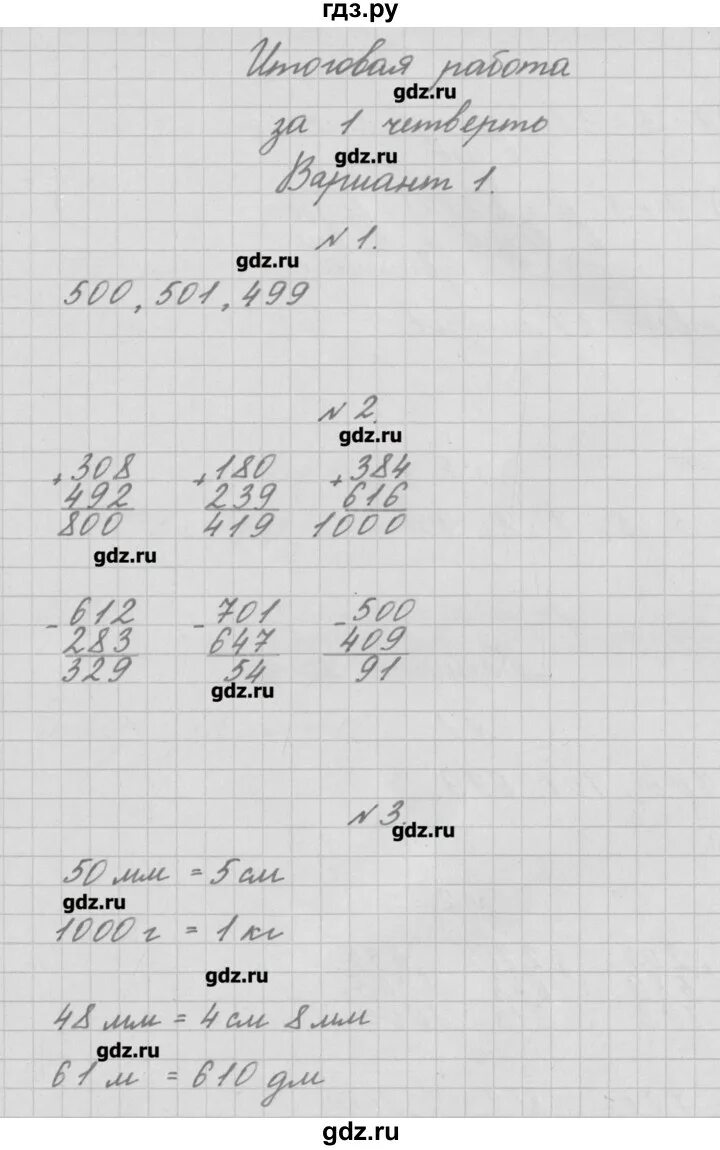 гдз.ру
Итоговая работа
gdz.ru
за 1 четверть
gdz.ru
Вариант 1.
№ 1.
gdz.ru
500, 501, 499
№ 2.
gdz.ru
+308 +180 +384
492 239 616
800 419 1000
gdz.ru
-612 -701 -500
283 647 409
329 54 91
gdz.ru
№ 3.
gdz.ru
50 мм = 5 см
gdz.ru
1000 г = 1 кг
gdz.ru
48 мм = 4 см 8 мм
gdz.ru
61 м = 610 дм
gdz.ru